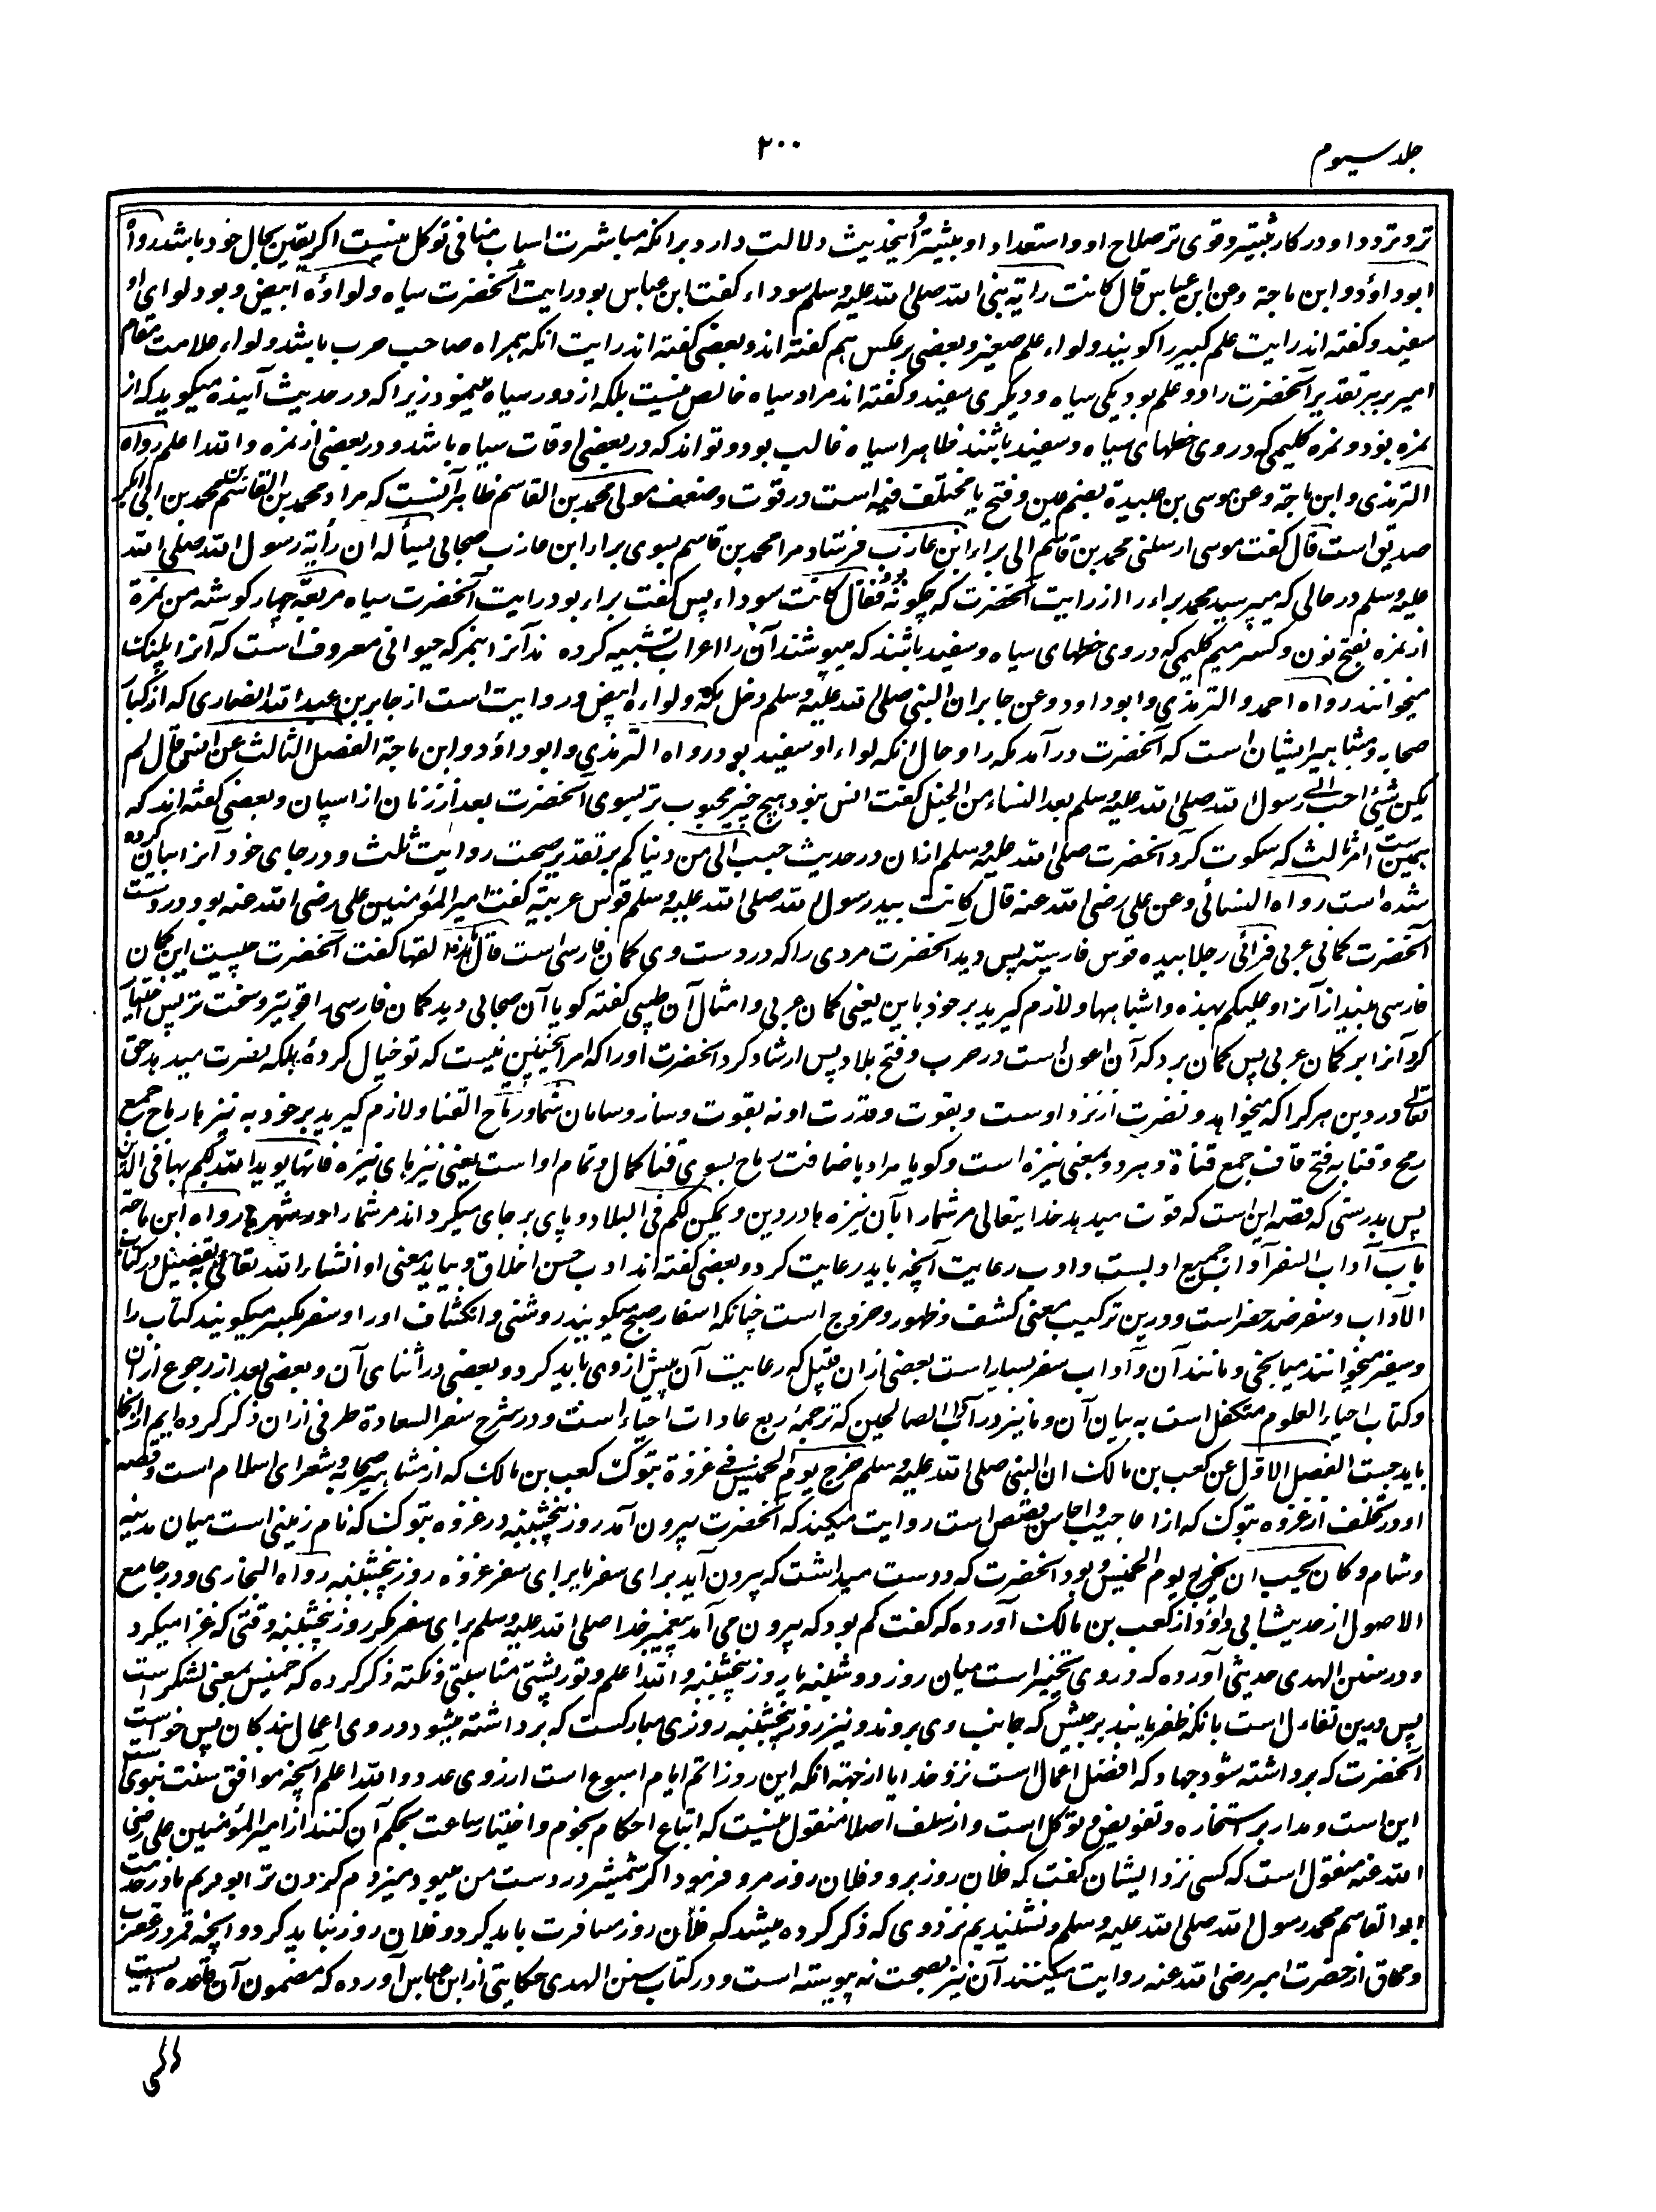 جلد سیوم
۲۰۰
تر و تردد او در کار بیشتر و قوی تر صلاح او و استعداد او بیشتر اینحدیث دلالت دارد برانکه مباشرت اسباب منافی توکل نیست اگر یقین بحال خود باشد رواه
ابوداؤد و ابن ماجة وعن ابن عباس قال کانت رایة نبی الله صلی الله علیه وسلم سوداء گفت ابن عباس بود رایت آنحضرت سیاه ولواؤه ابیض و بود لوای او
سفید و گفته اند رایت علم کبیر را گویند ولواء علم صغیر و بعضی برعکس هم گفته اند و بعضی گفته اند رایت انکه همراه صاحب حرب باشد ولواء علامت مقام
امیر و بر هر تقدیر آنحضرت را دو علم بود یکی سیاه و دیگری سفید و گفته اند مراد سیاه خالص نیست بلکه از دور سیاه مینمود زیرا که در حدیث آینده میگوید که از
نمره بود و نمره گلیمی که در وی خطهای سیاه و سفید باشند ظاهرا سیاه غالب بود و تواند که در بعضی اوقات سیاه باشد و در بعضی از نمره والله اعلم رواه
الترمذی وابن ماجة وعن موسی بن عبیدة بضم عین و فتح با مختلف فیه است در قوت و ضعف مولی محمد بن القاسم ظاهر آنست که مراد محمد بن القاسم بن محمد بن ابی بکر
صدیق است قال گفت موسی ارسلنی محمد بن قاسم الی براء ابن عازب فرستاد مرا محمد بن قاسم بسوی براء ابن عازب صحابی یسأله ان رأیة رسول الله صلی الله
علیه وسلم در حالی که میپرسید محمد براء را از رایت آنحضرت که چگونه بود فقال کانت سوداء پس گفت براء بود رایت آنحضرت سیاه مربعة چهار گوشه من نمرة
از نمره بفتح نون و کسر میم گلیمی که در وی خطهای سیاه و سفید باشند که میپوشند آن را اعراب تشبیه کرده ند آنرا بنمر که حیوانی معروف است که آنرا پلنگ
میخوانند رواه احمد والترمذی وابو داود وعن جابر ان النبی صلی الله علیه وسلم دخل مکة ولواءه ابیض و روایت است از جابر بن عبدالله انصاری که از کبار
صحابه و مشاهیر ایشان است که آنحضرت در آمد مکه را و حال انکه لواء او سفید بود رواه الترمذی وابوداؤد وابن ماجة الفصل الثالث عن انس قال لم
یکن شیئ احب الی رسول الله صلی الله علیه وسلم بعد النساء من الخیل گفت انس نبود هیچ چیز محبوب تر بسوی آنحضرت بعد از زنان از اسپان و بعضی گفته اند که
همین ست امر ثالث که سکوت کرد آنحضرت صلی الله علیه وسلم ازان در حدیث حبب الی من دنیاکم بر تقدیر صحت روایت ثلث و در جای خود آنرا بیان کرده
شده است رواه النسائی وعن علی رضی الله عنه قال کانت بید رسول الله صلی الله علیه وسلم قوس عربیة گفت امیر المؤمنین علی رضی الله عنه بود در دست
آنحضرت کمانی عربی فرأی رجلا بیده قوس فارسیة پس دید آنحضرت مردی را که در دست وی کمان فارسی است قال ما هذه القها گفت آنحضرت چیست این کمان
فارسی بینداز آنرا وعلیکم بهذه واشباهها و لازم گیرید بر خود باین یعنی کمان عربی و امثال آن طیبی گفته گویا آن صحابی دید کمان فارسی را قویتر و سخت تر پس
کرد آنرا بر کمان عربی پس گمان برد که آن اعون است در حرب و فتح بلاد پس ارشاد کرد آنحضرت او را که امر اینچنین نیست که تو خیال کردهٔ بلکه نصرت میدهد حق
تعالی در دین هر کرا که میخواهد و نصرت از نزد اوست و بقوت و قدرت او نه بقوت و ساز و سامان شما ورماح القنا و لازم گیرید بر خود به نیزها رماح جمع
رمح و قنا به فتح قاف جمع قناة و هر دو بمعنی نیزه است و گویا مراد باضافت رماح بسوی قنا کمال و تمام او است یعنی نیزهای نیزه فانها یؤید الله لکم بها فی الدین
پس بدرستی که قصه این است که قوت میدهد خدایتعالی مر شما را بآن نیزه ها در دین ویمکن لکم فی البلاد و پای بر جای میگرداند مر شما را در شهرها رواه ابن ماجة
باب آداب السفر آداب جمع ادب است و ادب رعایت آنچه باید رعایت کرد و بعضی گفته اند ادب حسن اخلاق و بیاید معنی او انشاء الله تعالی به تفصیل در کتاب
الآداب و سفر ضد حضر است و درین ترکیب معنی کشف و ظهور و خروج است چنانکه اسفار صبح میگویند روشنی و انکشاف او را و سفر بکسر میگویند کتاب را
و سفیر میخوانند میانجی و مانند آن و آداب سفر بسیار است بعضی ازان قبیل که رعایت آن پیش از وی باید کرد و بعضی در اثنای آن و بعضی بعد از رجوع ازان
و کتاب احیاء العلوم متکفل است به بیان آن و ما نیز در آداب الصالحین که ترجمهٔ ربع عادات احیاء است و در شرح سفر السعادة طرفی ازان ذکر کرده ایم از انجا
باید جست الفصل الاول عن کعب بن مالک ان النبی صلی الله علیه وسلم خرج یوم الخمیس فی غزوة تبوک کعب بن مالک که از مشاهیر صحابه و شعرای اسلام است و قصه
او در تخلف از غزوه تبوک که از اعاجیب و احاسن قصص است روایت میکند که آنحضرت بیرون آمد روز پنجشنبه در غزوه تبوک که نام زمینی است میان مدینه
وشام وکان یحب ان یخرج یوم الخمیس و بود آنحضرت که دوست میداشت که بیرون آید برای سفر یا برای سفر غزوه روز پنجشنبه رواه البخاری و در جامع
الاصول از حدیث ابی داؤد از کعب بن مالک آورده که گفت کم بود که بیرون می آمد پیغمبر خدا صلی الله علیه وسلم برای سفر مگر روز پنجشنبه وقتی که غزا میکرد
و در سنن الهدی حدیثی آورده که در وی تخییر است میان روز دوشنبه یا روز پنجشنبه والله اعلم و تورپشتی مناسبتی و نکته ذکر کرده که خمیس بمعنی لشکر است
پس درین تفاءل است بانکه ظفر یابند بر جیش که بجانب وی بروند و نیز روز پنجشنبه روزی مبارکست که برداشته میشود در وی اعمال بندگان پس خواست
آنحضرت که برداشته شود جهاد که افضل اعمال است نزد خدا یا ازجهة انکه این روز اتم ایام اسبوع است از روی عدد والله اعلم آنچه موافق سنت نبوی است
این است و مدار بر استخاره و تفویض و توکل است و از سلف اصلا منقول نیست که اتباع احکام نجوم و اختیار ساعت بحکم آن کنند از امیر المؤمنین علی رضی
الله عنه منقول است که کسی نزد ایشان گفت که فلان روز برو و فلان روز مرو فرمود اگر شمشیر در دست من میبود میزدم گردن ترا بودیم ما در خدمت
ابوالقاسم محمد رسول الله صلی الله علیه وسلم و نشنیدیم نزد وی که ذکر کرده میشد که فلان روز مسافرت باید کرد و فلان روز نباید کرد و آنچه قمر در عقرب
و محاق از حضرت امیر رضی الله عنه روایت میکنند آن نیز بصحت نه پیوسته است و در کتاب سنن الهدی حکایتی از ابن عباس آورده که مضمون آن قاعده است
الهی